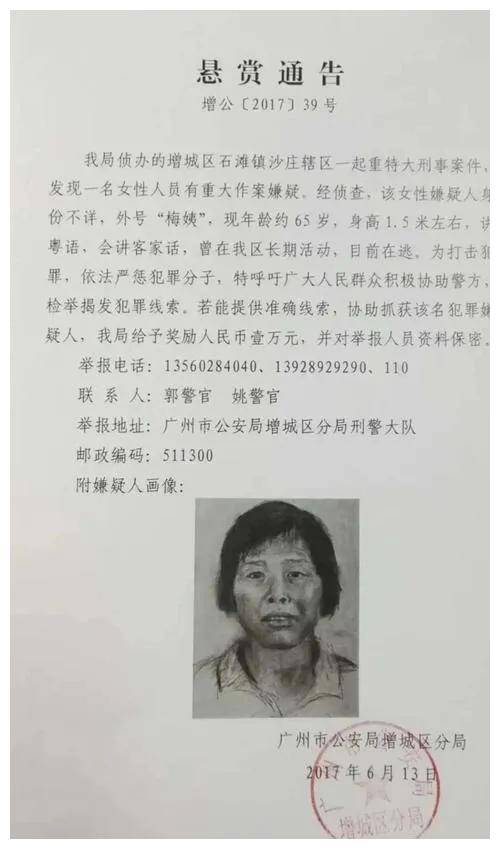 悬赏通告
增公〔2017〕39号
我局侦办的增城区石滩镇沙庄辖区一起重特大刑事案件，
发现一名女性人员有重大作案嫌疑。经侦查，该女性嫌疑人身
份不详，外号“梅姨”，现年龄约65岁，身高1.5米左右，讲
粤语，会讲客家话，曾在我区长期活动，目前在逃。为打击犯
罪，依法严惩犯罪分子，特呼吁广大人民群众积极协助警方，
检举揭发犯罪线索。若能提供准确线索，协助抓获该名犯罪嫌
疑人，我局给予奖励人民币壹万元，并对举报人员资料保密。
举报电话：13560284040、13928929290、110
联 系 人：郭警官 姚警官
举报地址：广州市公安局增城区分局刑警大队
邮政编码：511300
附嫌疑人画像：
广州市公安局增城区分局
2017年6月13日
增城区分局